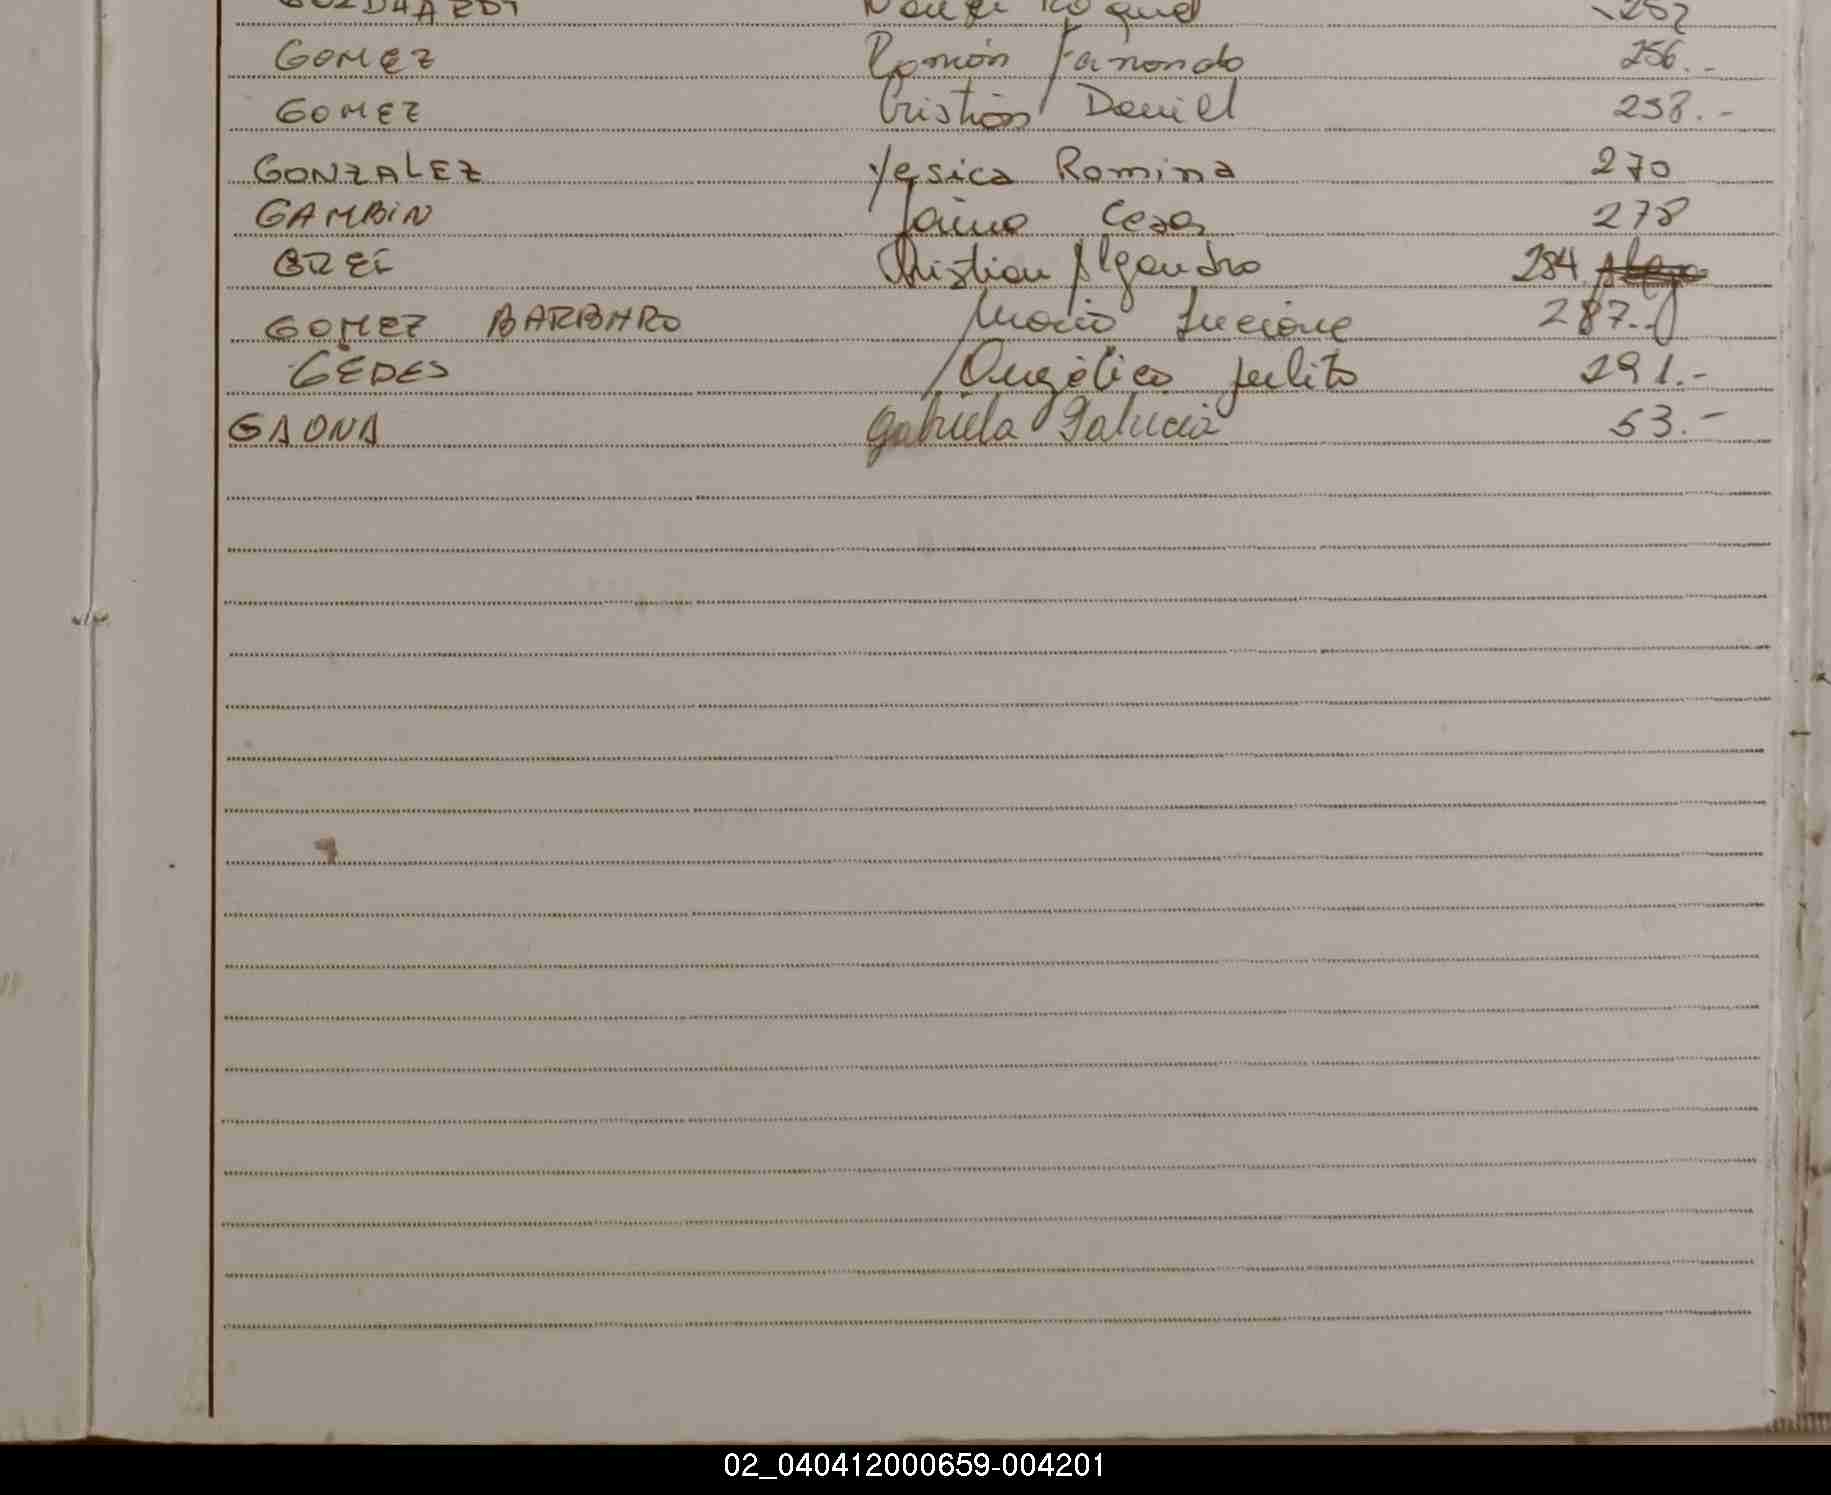 GOMEZ Ramón Fernando 256.-
GOMEZ Cristián Daniel 258.-
GONZALEZ Yesica Romina 270
GAMBIN Jaime Cesar 278
GREF Christian Alejandro 284
GOMEZ BARBARO María Luciane 287.-
GEDES Angélica Julita 291.-
GAONA Gabriela Patricia 53.-
02_040412000659-004201